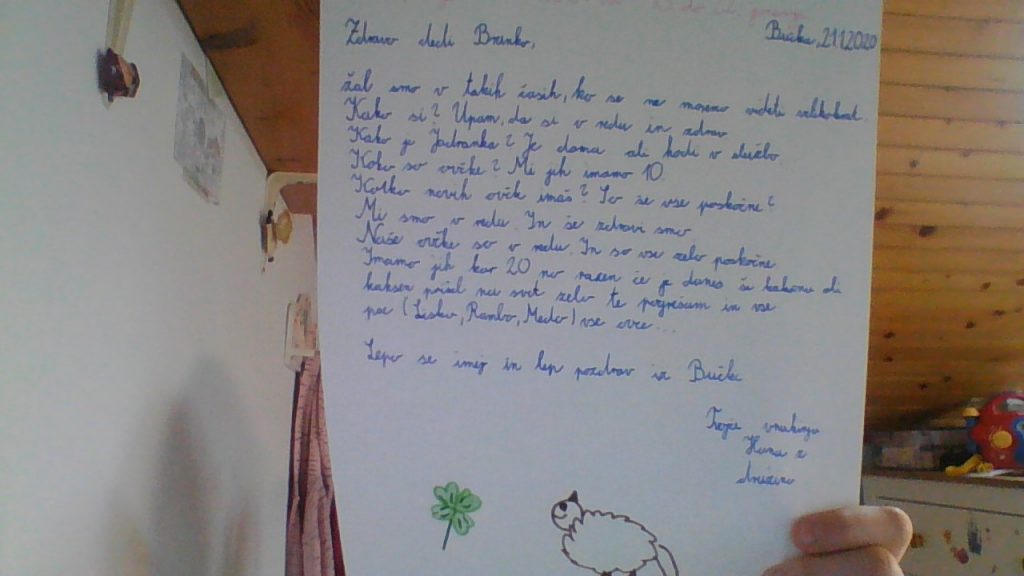 Zdravo dedi Branko,
Bučka, 21.1.2020
žal smo v takih časih, ko se ne moremo videti velikokrat.
Kako si? Upam, da si v redu in zdrav
Kako je Jadranka? Je doma ali hodi v službo
Koko so ovčke? Mi jih imamo 10.
Kolko novih ovčk imaš? So še vse poskočne?
Mi smo v redu. In še zdravi smo
Naše ovčke so v redu. In so vse zelo poskočne
Imamo jih kar 20 no razen če je danes še kakšna ali
kakšen prišel na svet zelo te pogrešam in vse
pse (Liska, Rambo, Medo) vse ovce...
Lepo se imej in lep pozdrav iz Bučke
vnukinja
Hana z
družino